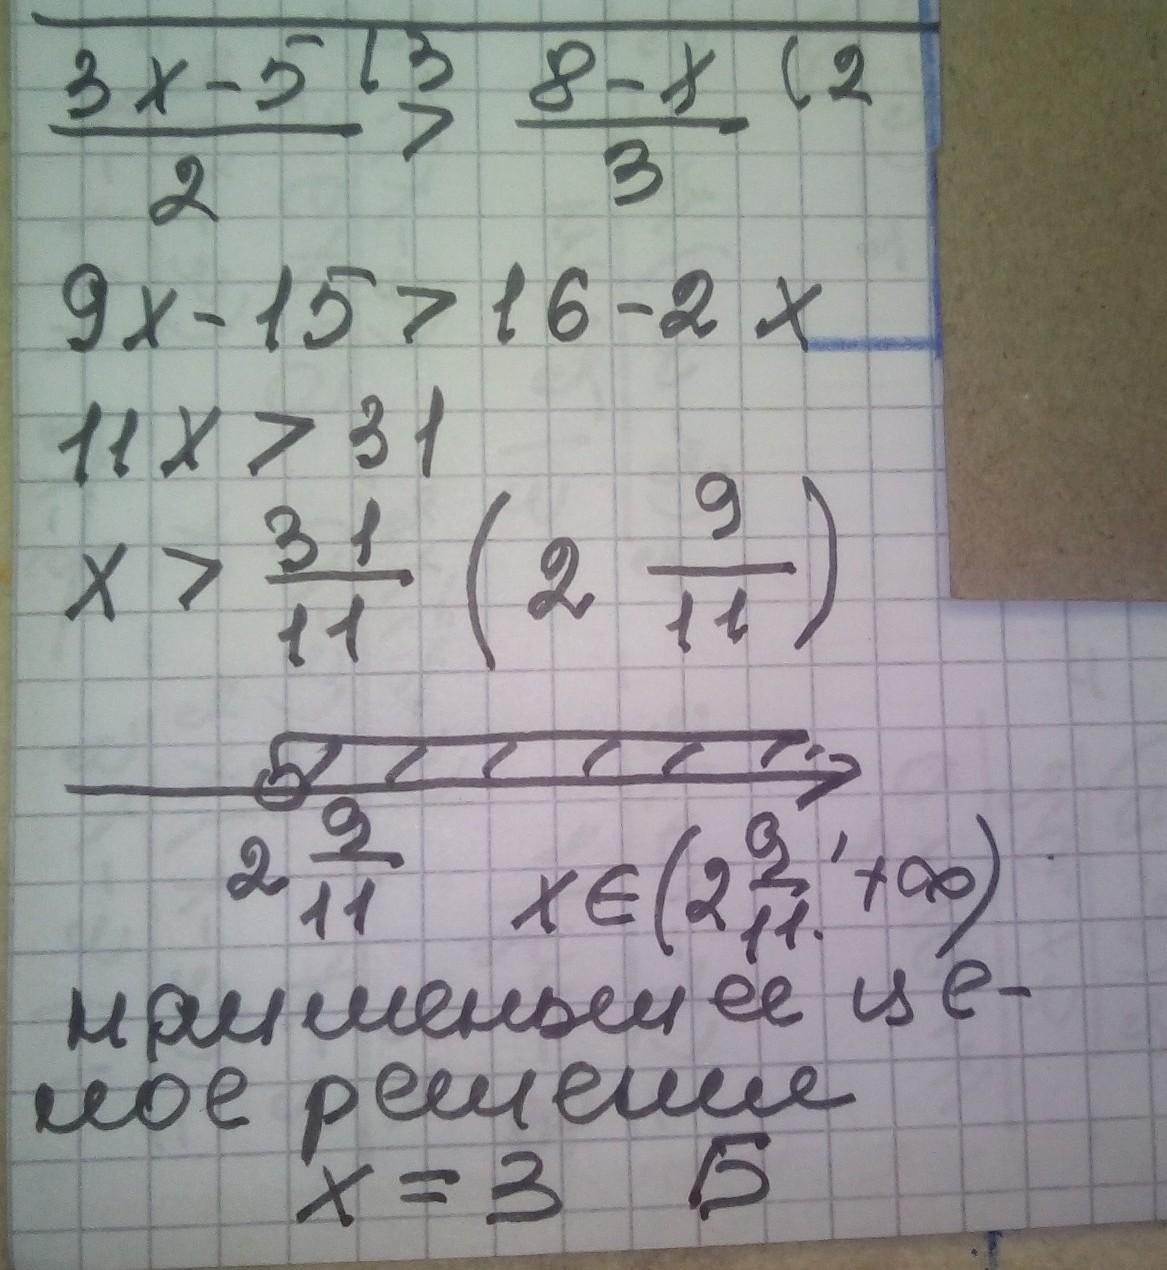 (3x-5)/2 (3 > (8-x)/3 (2
9x-15>16-2x
11x>31
x > 31/11 (2 9/11)
2 9/11 x∈(2 9/11; +∞)
наименьшее це-
лое решение
x=3 Б